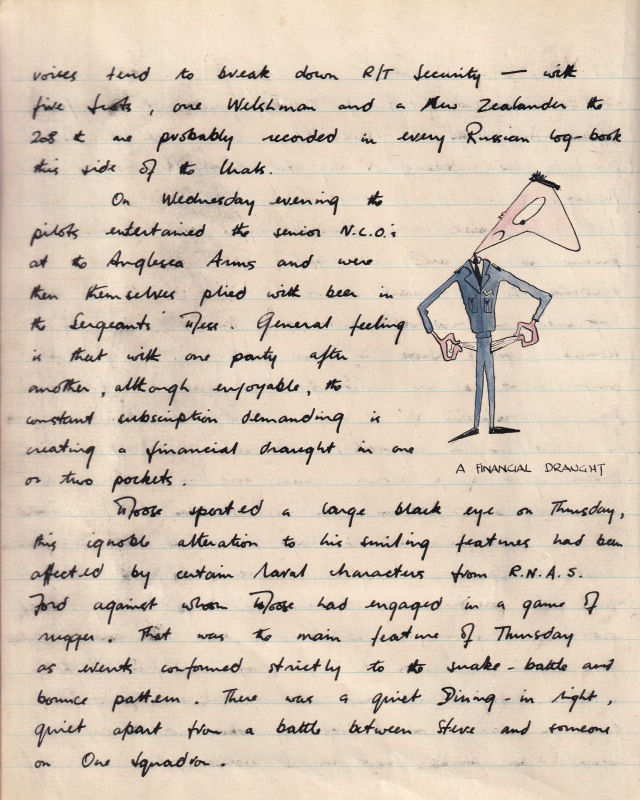 voices tend to break down R/T Security — with
five Scots, one Welshman and a New Zealander the
208 th are probably recorded in every Russian log-book
this side of the Urals.
On Wednesday evening the
pilots entertained the senior N.C.O.'s
at the Anglesea Arms and were
then themselves plied with beer in
the Sergeants' Mess. General feeling
is that with one party after
another, although enjoyable, the
constant subscription demanding is
creating a financial draught in one
or two pockets.
A FINANCIAL DRAUGHT
Moose sported a large black eye on Thursday,
this ignoble alteration to his smiling features had been
affected by certain Naval characters from R.N.A.S.
Ford against whom Moose had engaged in a game of
rugger. That was the main feature of Thursday
as events conformed strictly to the snake-battle and
bounce pattern. There was a quiet Dining-in night,
quiet apart from a battle between Steve and someone
on One Squadron.